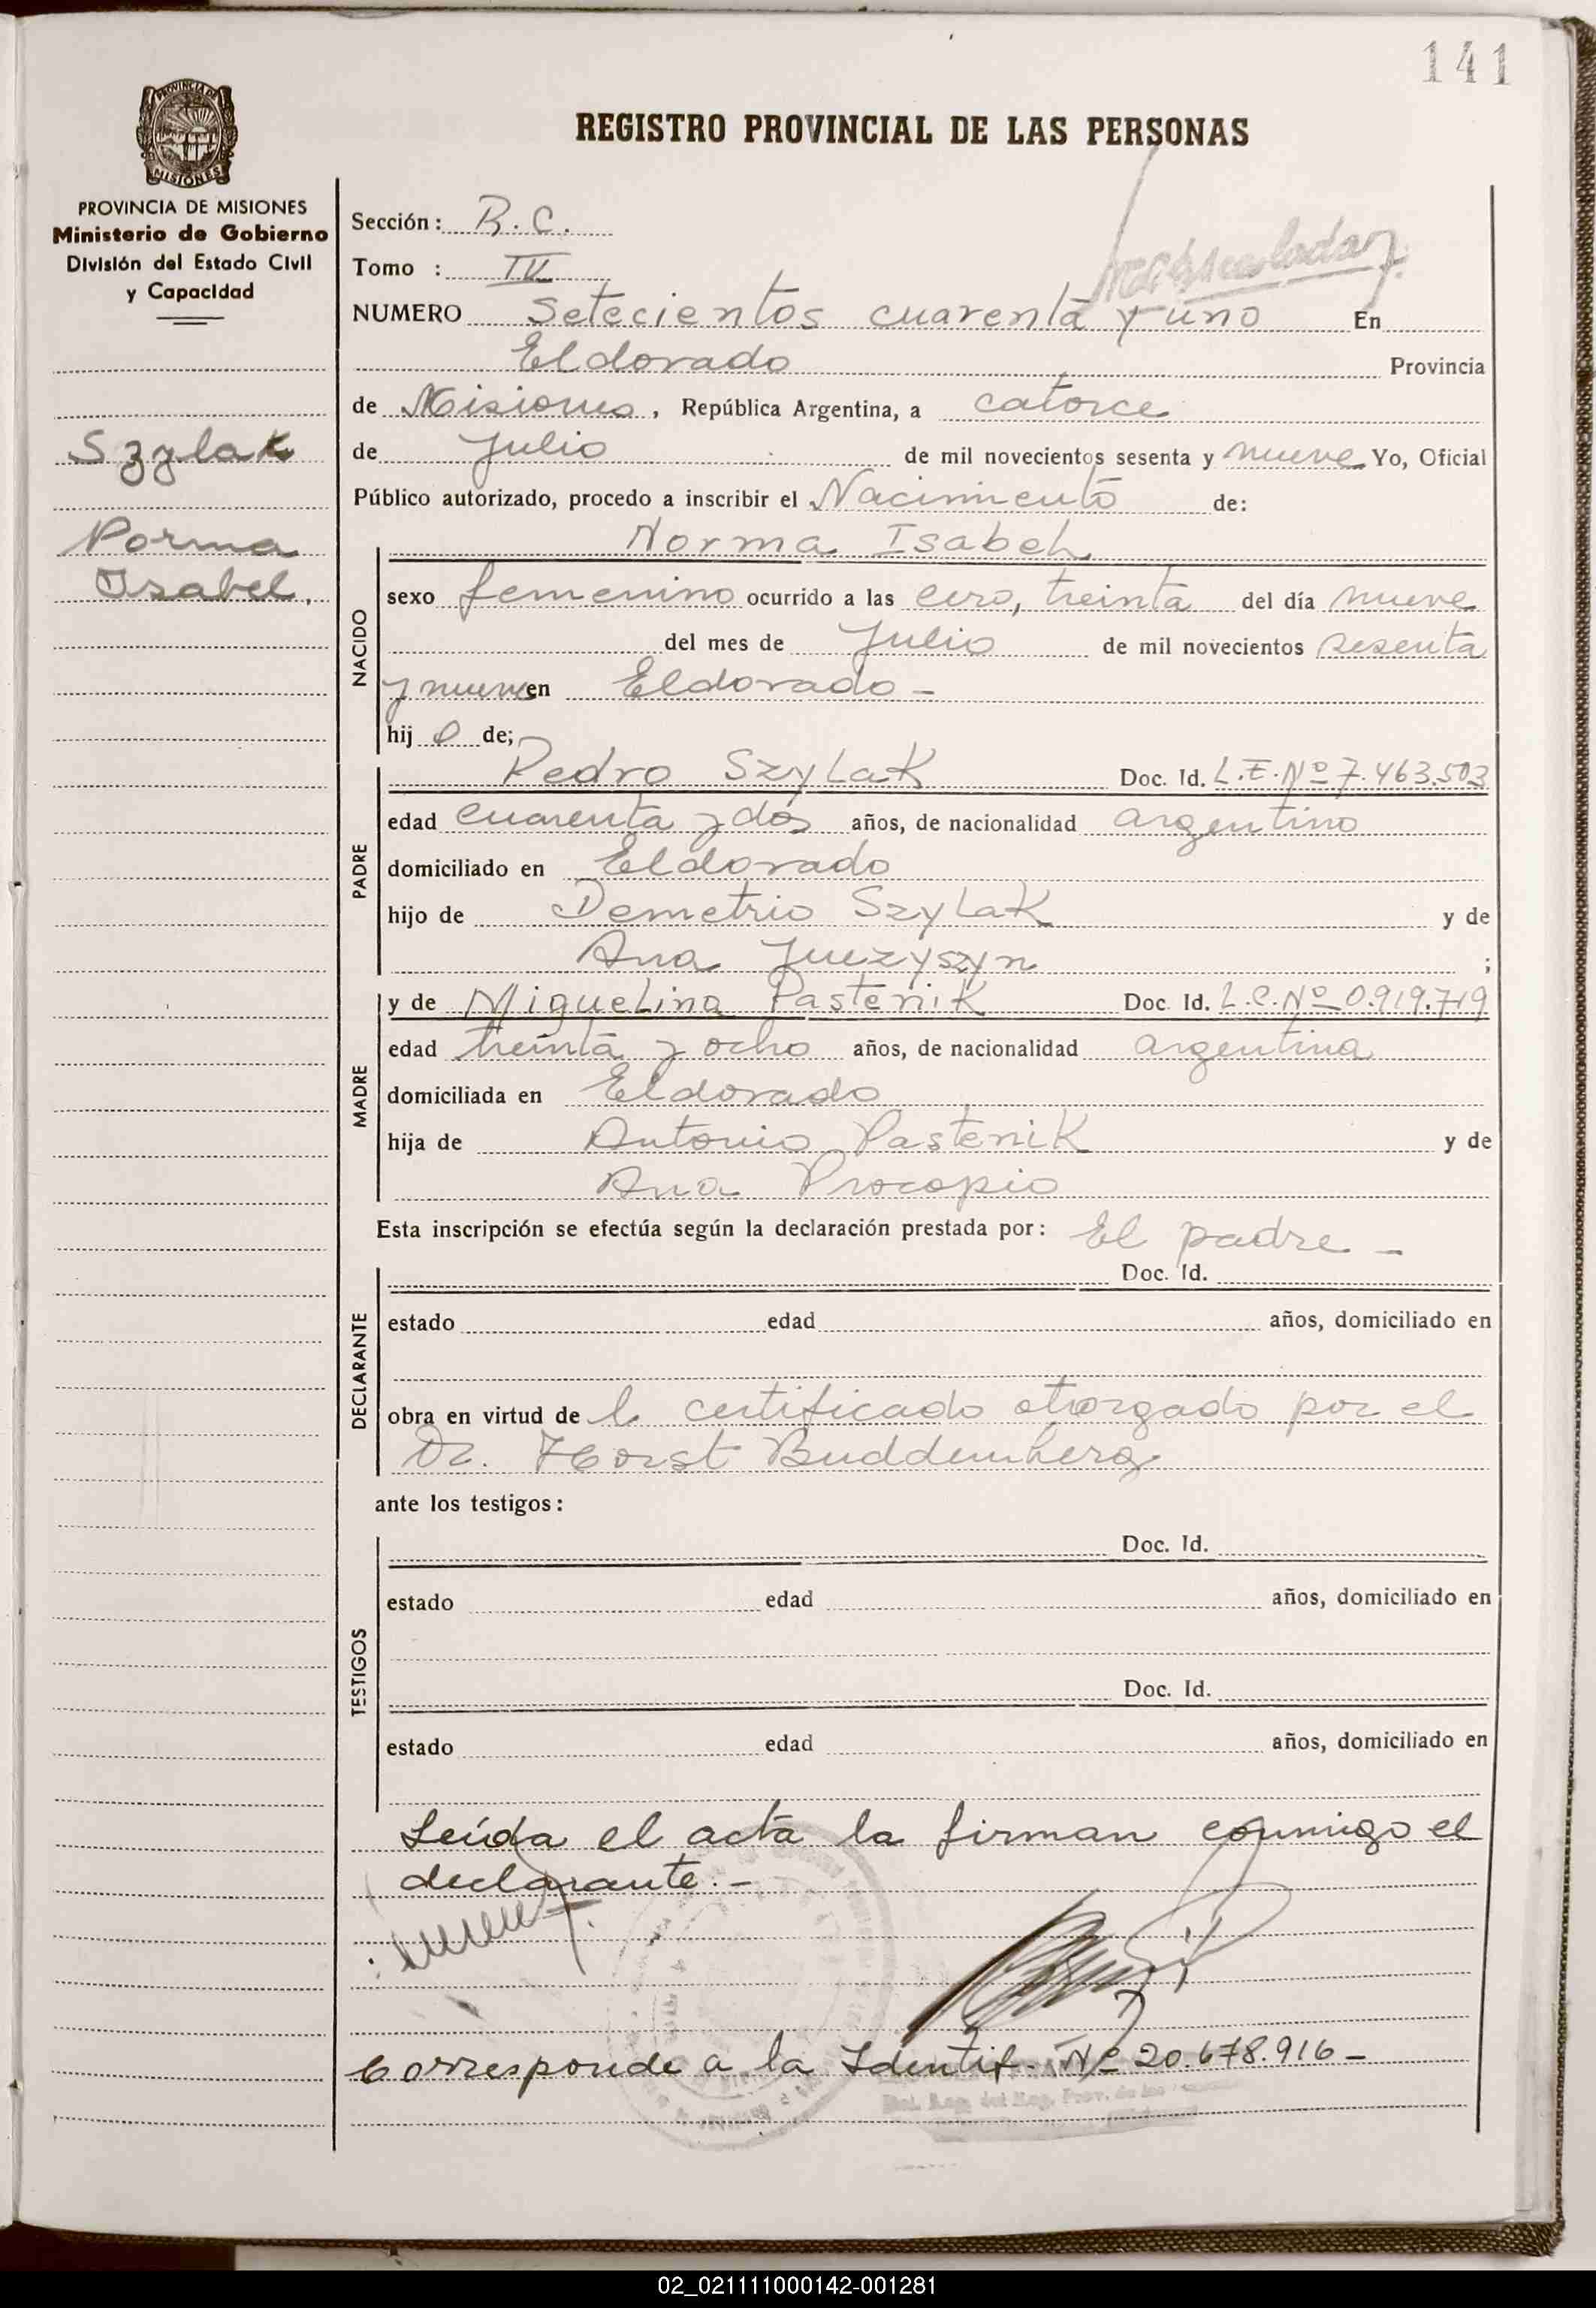 141
REGISTRO PROVINCIAL DE LAS PERSONAS
PROVINCIA DE MISIONES
MISIONES
PROVINCIA DE MISIONES
Ministerio de Gobierno
División del Estado Civil
y Capacidad
Szylak
Norma
Isabel.
Sección: B. C.
Tomo : IV
NUMERO Setecientos cuarenta y uno En
Eldorado Provincia
de Misiones, República Argentina, a catorce
de Julio de mil novecientos sesenta y nueve Yo, Oficial
Público autorizado, procedo a inscribir el Nacimiento de:
Norma Isabel
NACIDO
sexo femenino ocurrido a las cero, treinta del día nueve
del mes de Julio de mil novecientos sesenta
y nueve en Eldorado -
hij a de;
PADRE
Pedro Szylak Doc. Id. L.E. Nº 7.463.503
edad cuarenta y dos años, de nacionalidad argentino
domiciliado en Eldorado
hijo de Demetrio Szylak y de
Ana ;
MADRE
y de Miguelina Pastenik Doc. Id. L.C. Nº 0.919.719
edad treinta y ocho años, de nacionalidad argentina
domiciliada en Eldorado
hija de Antonio Pastenik y de
Ana Procopio
Esta inscripción se efectúa según la declaración prestada por: El padre -
DECLARANTE
Doc. Id.
estado edad años, domiciliado en
obra en virtud de l certificado otorgado por el
Dr. Horst Buddemberg
ante los testigos:
TESTIGOS
Doc. Id.
estado edad años, domiciliado en
Doc. Id.
estado edad años, domiciliado en
Leída el acta la firman conmigo el
declarante.-
Corresponde a la Identif. Nº 20.678.916-
02_021111000142-001281